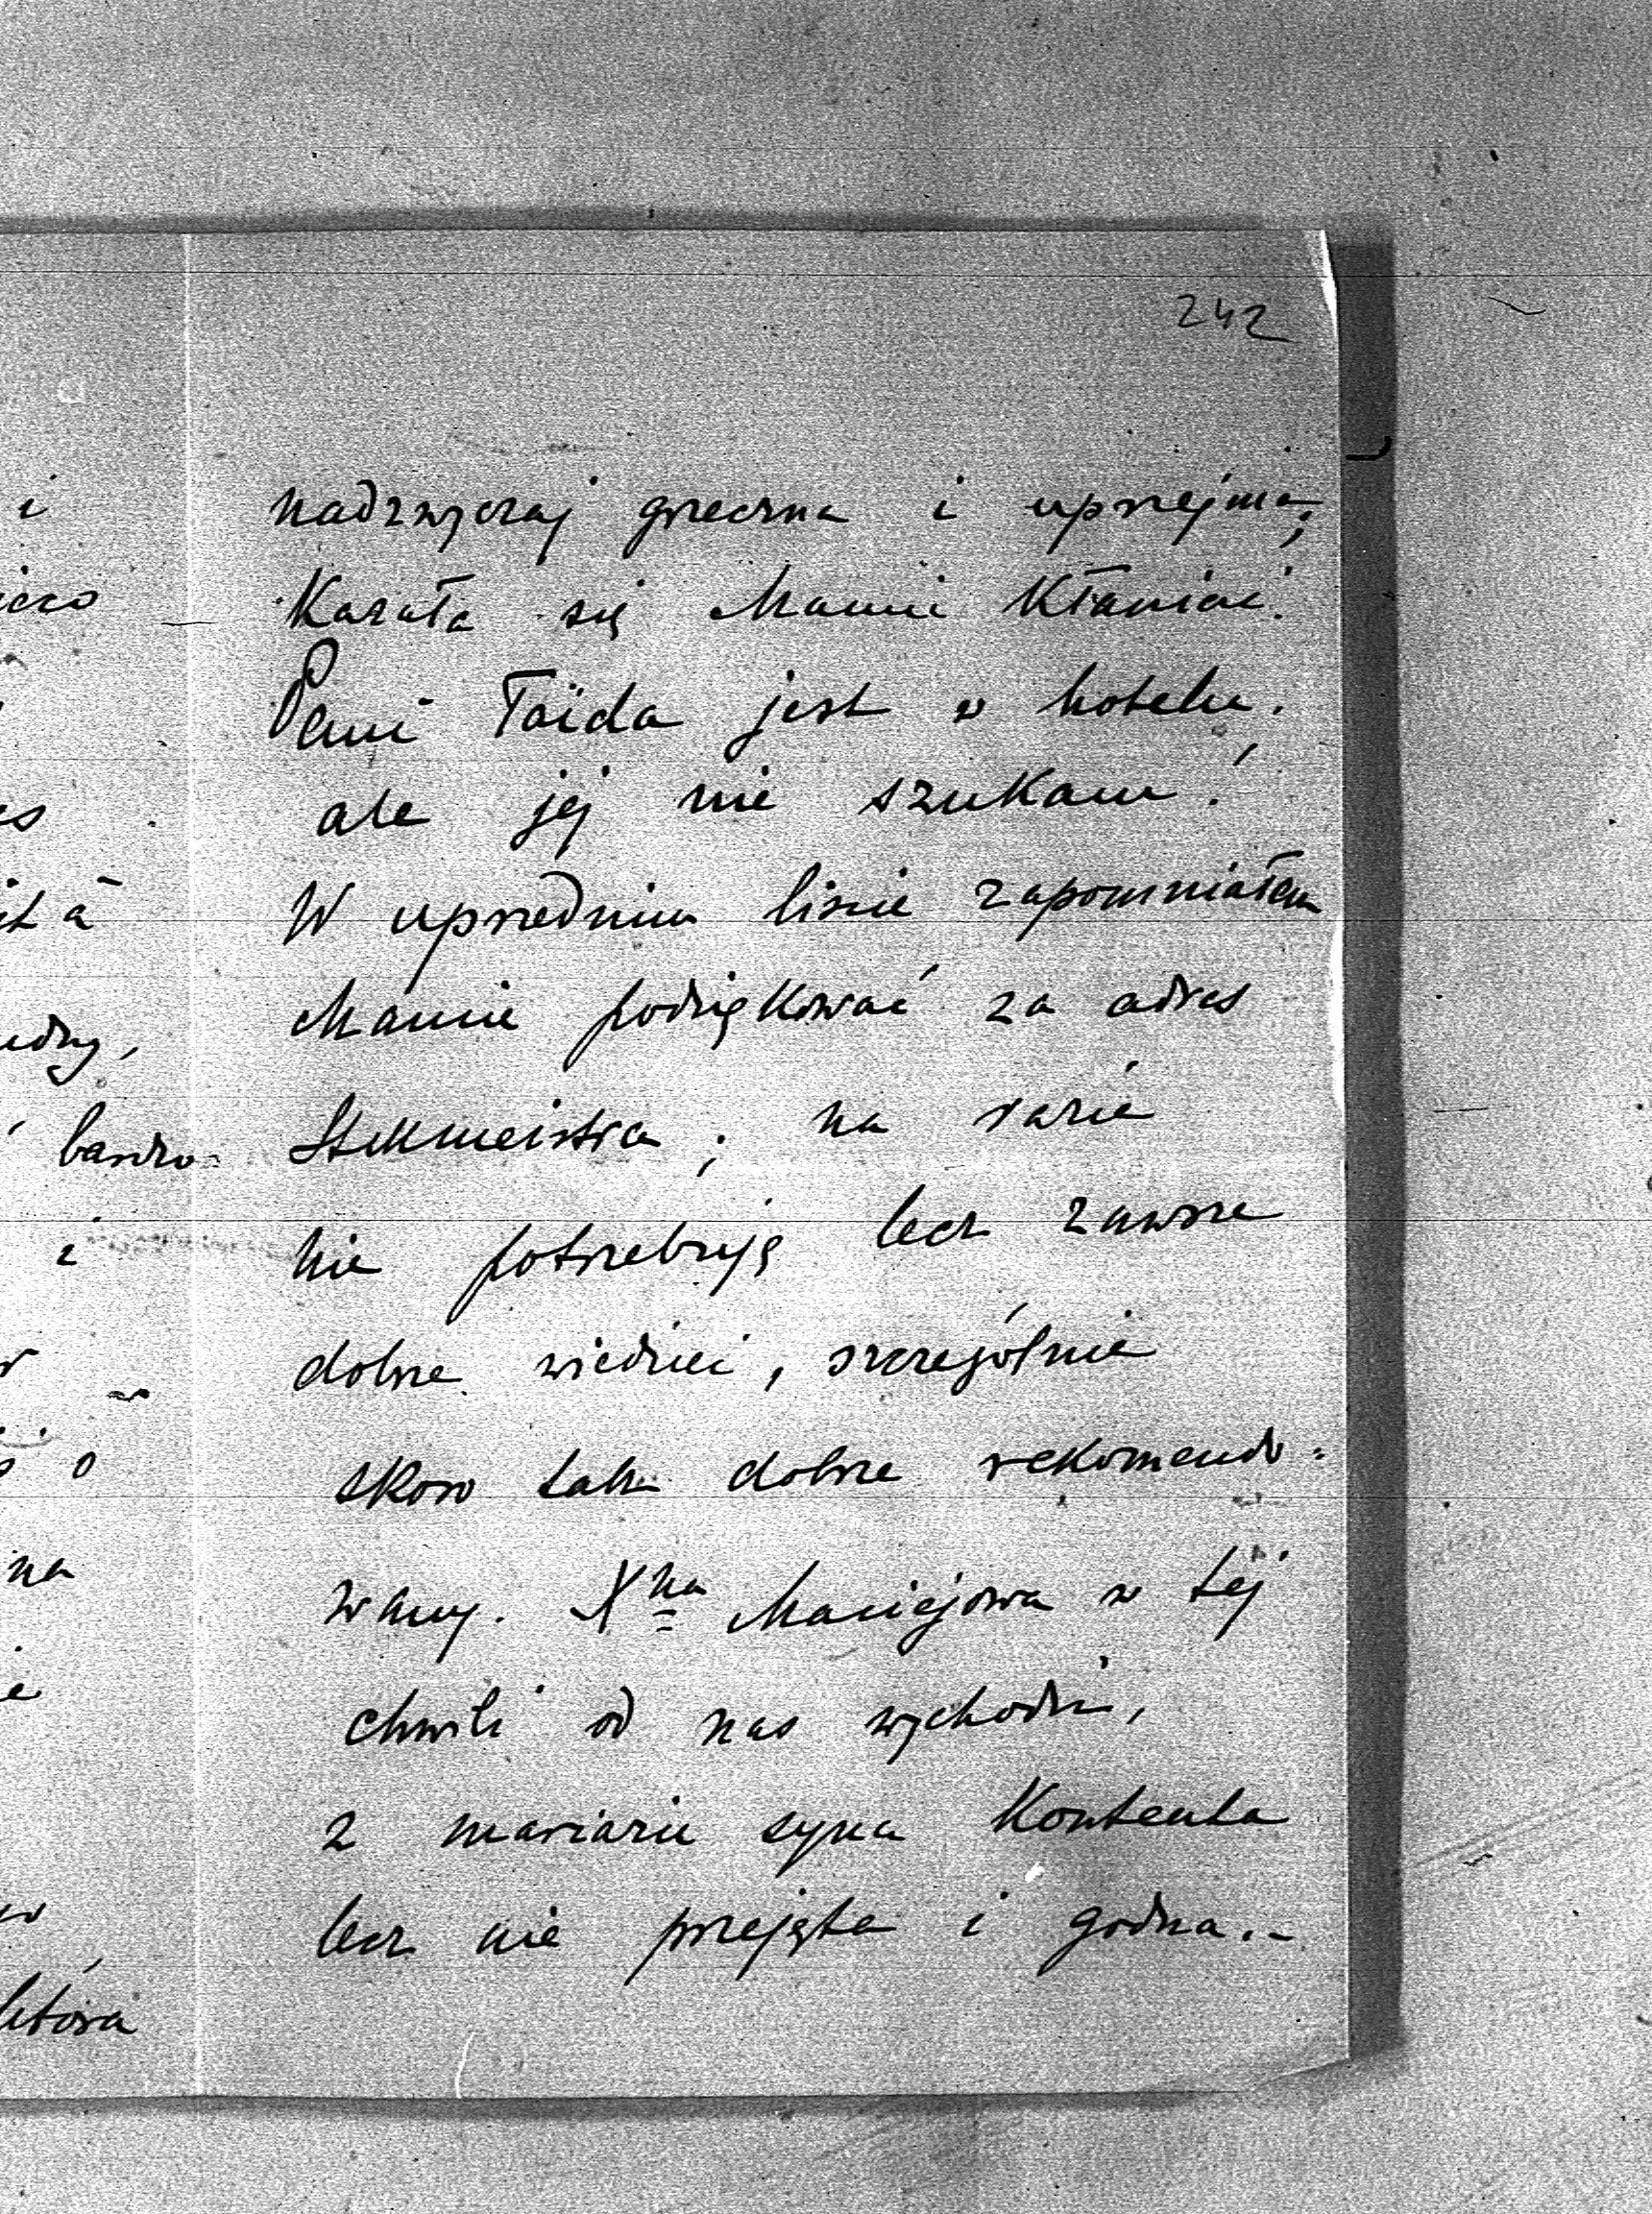 242
nadzwyczaj grzeczna i uprzejma;
Kazała się Mamie Kłaniać.
Pani Taïda jest w hotelu.
ale jej nie szukam!
W uprzednim liście zapomniałem
Mamie podziękować za adres
na razie
nie potrzebuję lecz zawsze
dobrze wiedzieć, szczególnie
skoro tak dobrze rekomendo-
wany. Xna Maciejowa w tej
chwili od nas wychodzi,
z mariażu syna Kontenta
lecz nie przejęta i godna..-
i
es
bardzo
i
o
na
która